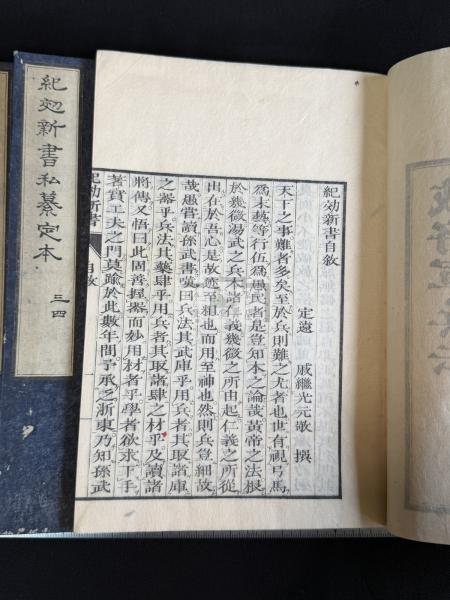 紀効新書私纂定本
三四
紀効新書自敘
定遠 戚繼光元敬 撰
天下之事難者多矣至於兵則難之尤者也世有視弓馬
爲末藝等行伍爲愚民者是豈知本之論哉黃帝之法根
於幾微湯武之兵本諸仁義幾微之所由起仁義之所從
出在於吾心是故迹至粗也而用至神也然則兵豈細故
哉愚嘗讀孫武書嘆曰兵法其武庫乎用兵者其取諸庫
之器乎兵法其藥肆乎用兵者其取諸肆之材乎及讀諸
將傳又悟曰此固善握器而妙用材者乎學者欲求下手
著實工夫之門莫踰於此數年間予承乏浙東乃知孫武
紀効新書
自敘